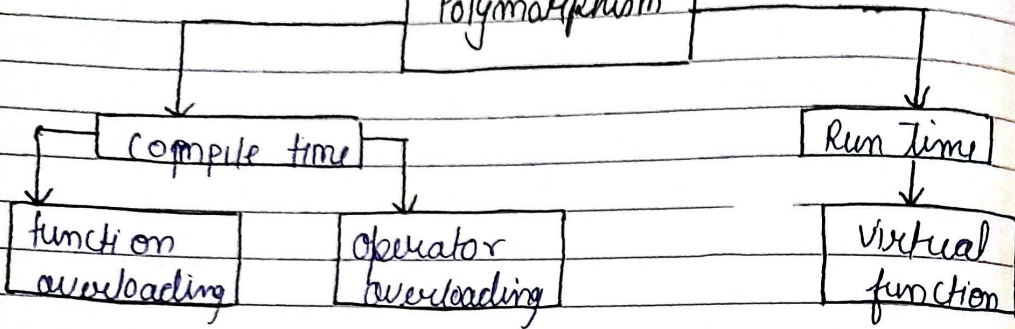 Polymorphism
Compile time
Run Time
function
overloading
operator
overloading
virtual
function